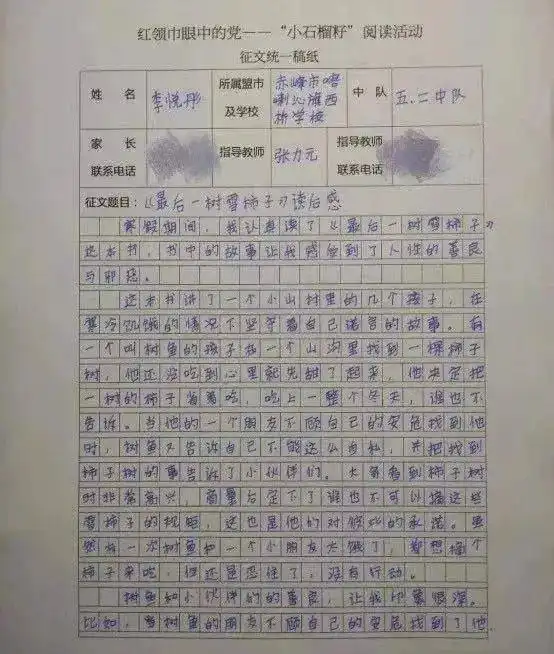 红领巾眼中的党——“小石榴籽”阅读活动
征文统一稿纸
姓 名 李悦彤 所属盟市及学校 赤峰市喀喇沁旗西桥学校 中 队 五.二中队
家 长 联系电话 指导教师 张力元 指导教师 联系电话
征文题目：《最后一树雪柿子》读后感
寒假期间，我认真读了《最后一树雪柿子》
这本书，书中的故事让我感受到了人性的善良
与邪恶。
这本书讲了一个小山村里的几个孩子，在
寒冷饥饿的情况下坚守着自己诺言的故事。有
一个叫树鱼的孩子在一个山沟里找到一棵柿子
树，他还没吃到心里就先甜了起来，他决定把
一树的柿子省着吃，吃上一整个冬天，谁也不
告诉。当他的一个朋友不顾自己的安危找到他
时，树鱼又告诉自己不能这么自私，并把找到
柿子树的事告诉了小伙伴们。大家看到柿子树
时非常高兴，商量后定下了谁也不可以摘这些
雪柿子的规矩，这也是他们对彼此的承诺。虽
然有一次树鱼和一个小朋友太饿了，都想摘个
柿子来吃，但还是忍住了，没有行动。
树鱼和小伙伴的的善良，让我印象很深。
比如，当树鱼的朋友不顾自己的安危找到了他